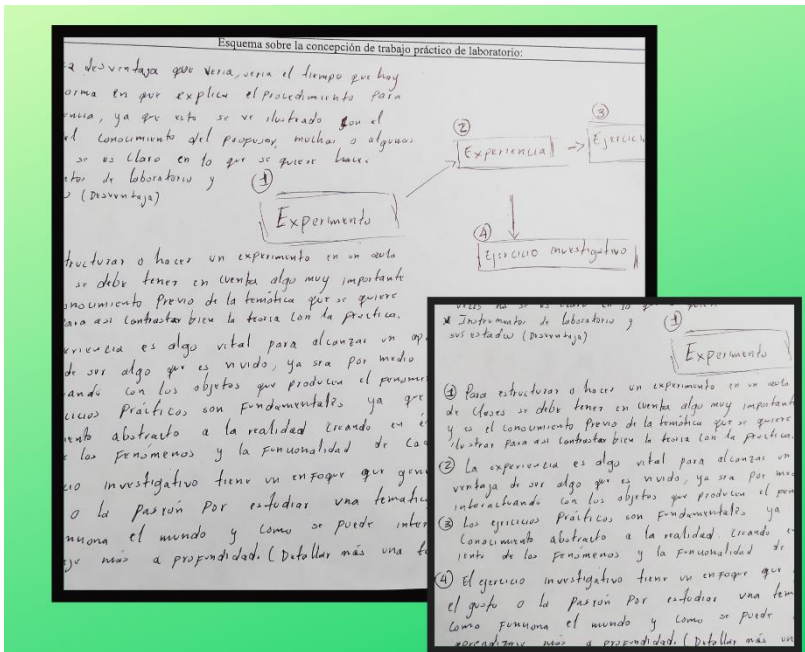 Esquema sobre la concepción de trabajo práctico de laboratorio:
desventaja que veria, seria el tiempo que hay
en que explica el procedimiento para
ya que esto se ve ilustrado con el
conocimiento del profesor, muchas o algunas
se es claro en lo que se quiere hacer
de laboratorio y
(Desventaja)
①
Experimento
②
Experiencia
③
④
Ejercicio investigativo
o hacer un experimento en un aula
se debe tener en cuenta algo muy importante
Previo de la temática que se quiere
para asi contrastar bien la teoria con la practica.
es algo vital para alcanzar un
de ser algo que es vivido, ya sea por medio
con los objetos que producen el
Prácticos son fundamentales ya que
abstracto a la realidad creando en
los fenomenos y la funcionalidad de
investigativo tiene un enfoque que
o la pasión por estudiar una
el mundo y como se puede
más a profundidad. (Detallar más una
* Instrumentos de laboratorio y
sus estados (Desventaja)
①
Experimento
① Para estructurar o hacer un experimento en un aula
de clases se debe tener en cuenta algo muy
y es el conocimiento Previo de la temática que se quiere
ilustrar para asi contrastar bien la teoria con la practica.
② La experiencia es algo vital para alcanzar un
ventaja de ser algo que es vivido, ya sea por
interactuando con los objetos que producen el
③ Los ejercicios Prácticos son fundamentales ya
conocimiento abstracto a la realidad. creando
de los fenomenos y la funcionalidad de
④ El ejercicio investigativo tiene un enfoque que
el gusto o la pasión por estudiar una
como funciona el mundo y como se puede
más a profundidad. (Detallar más